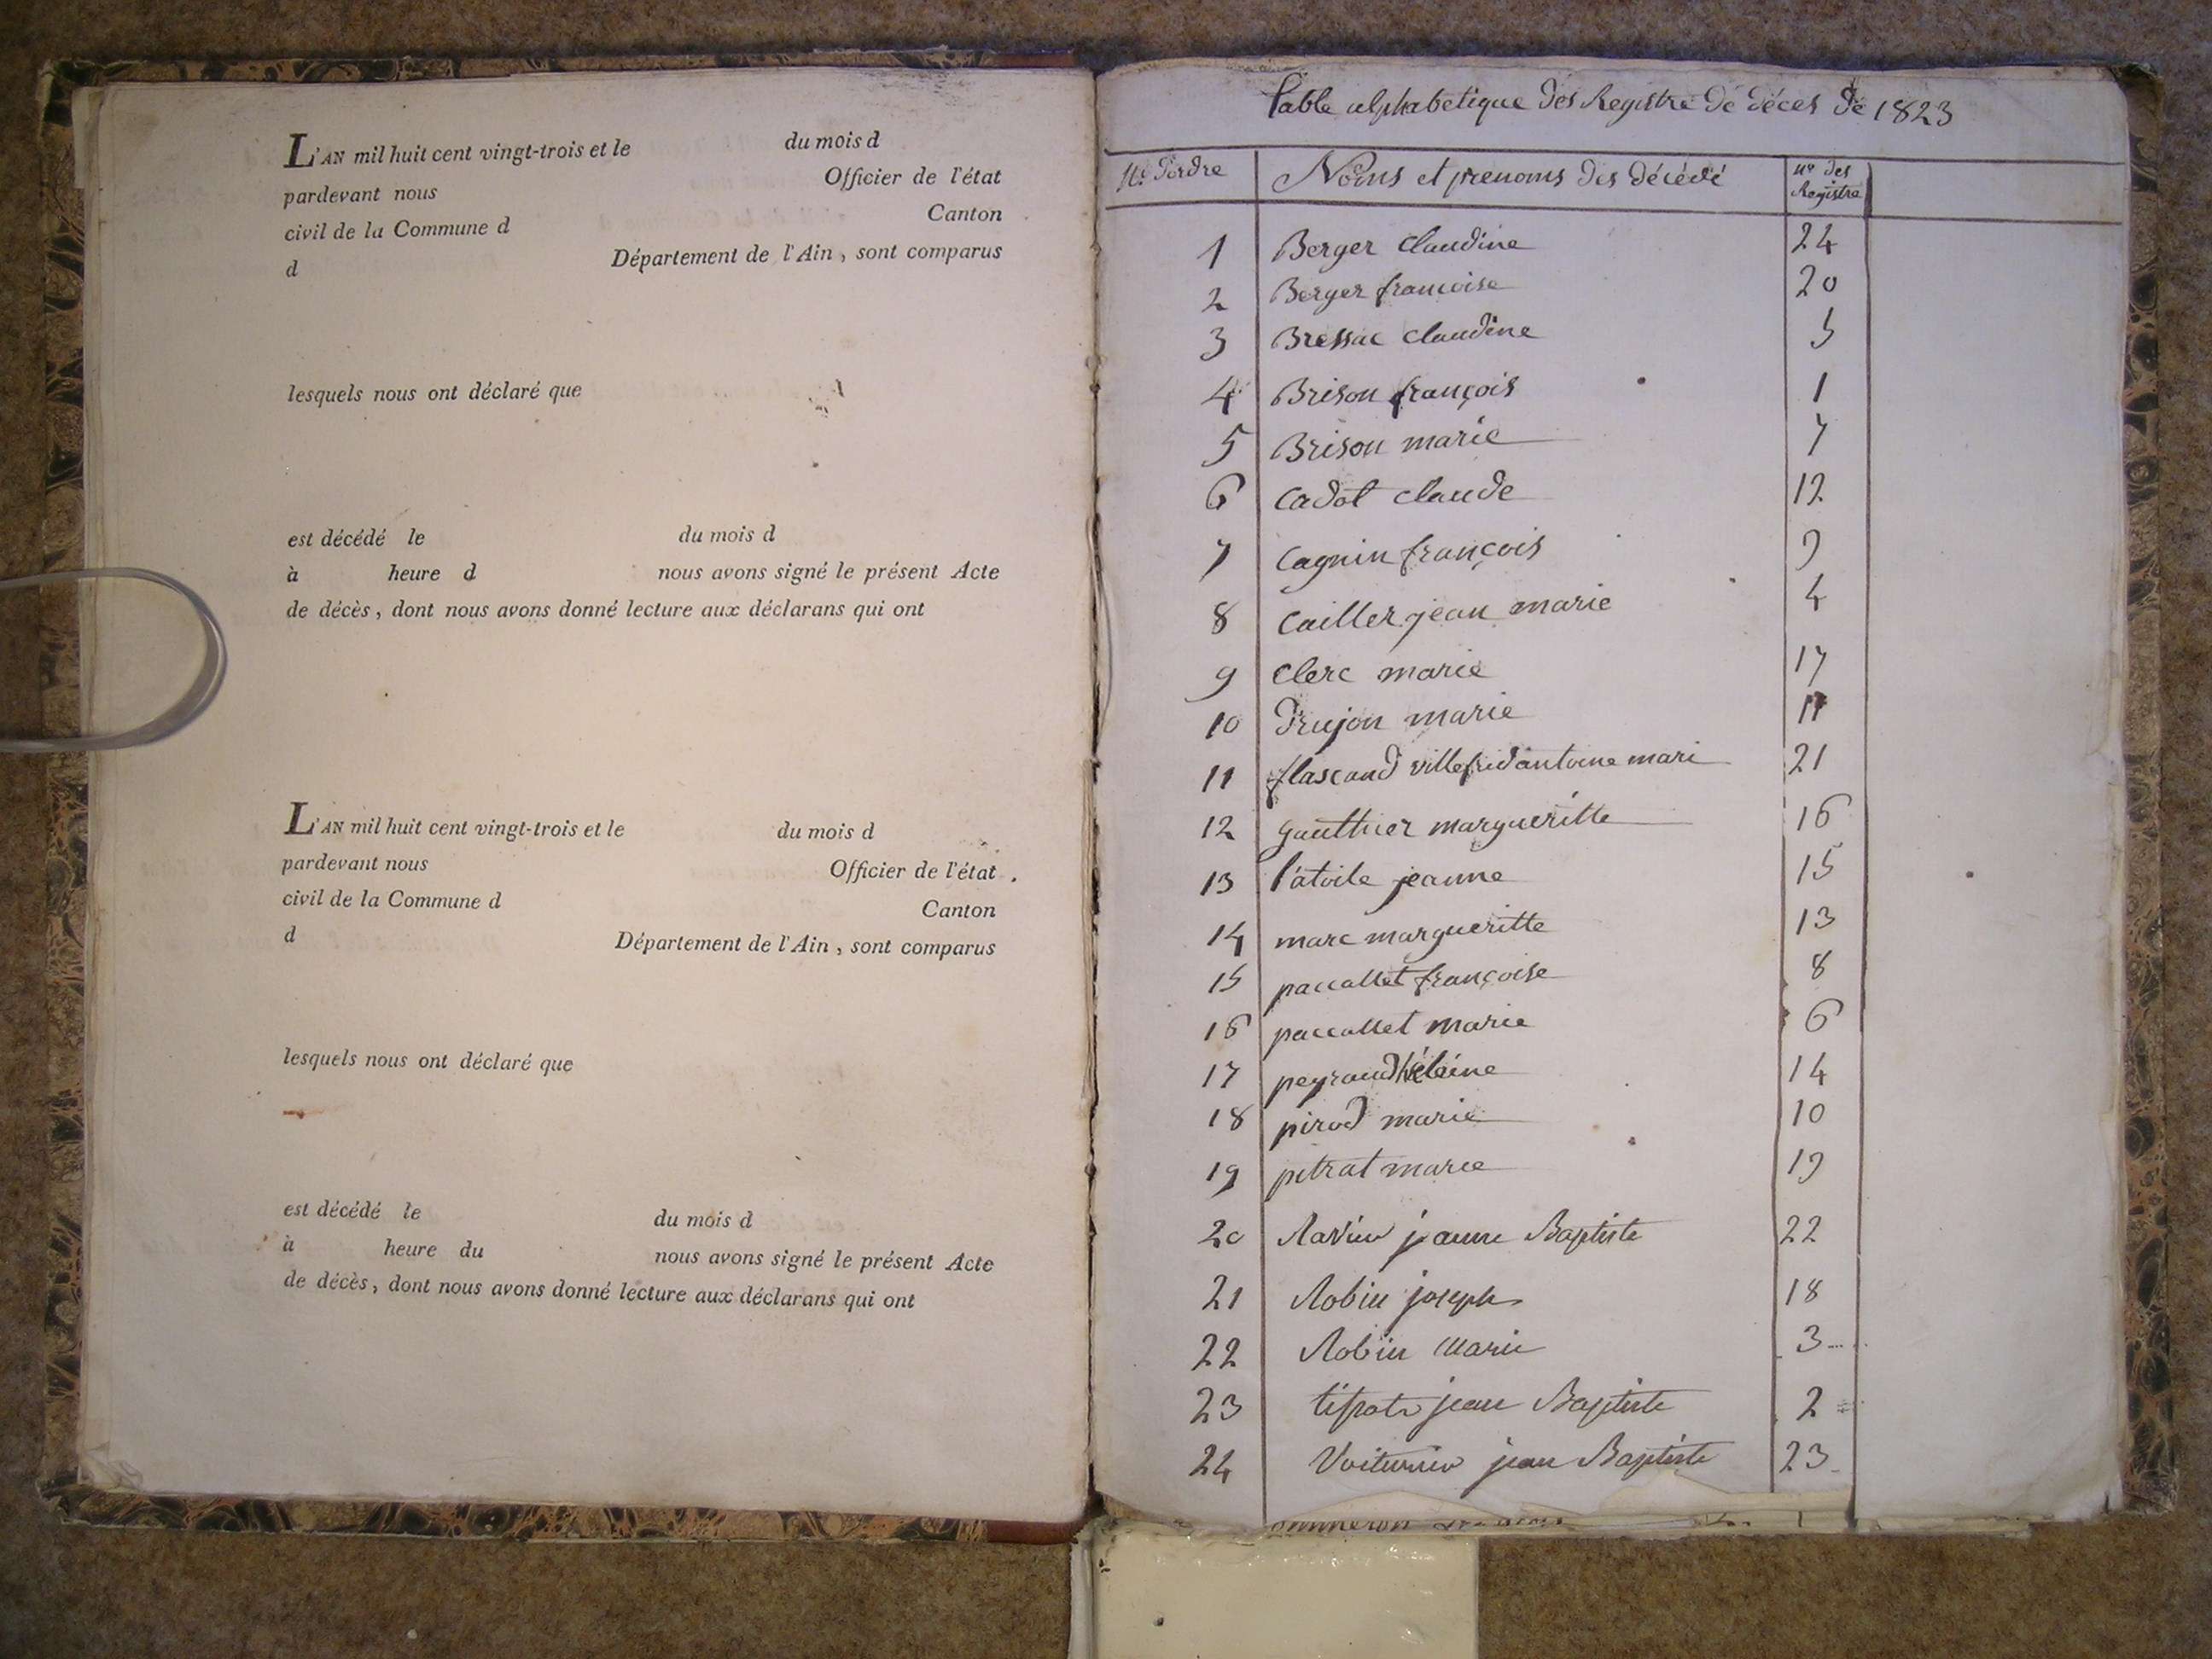 L'AN mil huit cent vingt-trois et le du mois d
pardevant nous Officier de l'état
civil de la Commune d Canton
d Département de l'Ain, sont comparus
lesquels nous ont déclaré que
est décédé le du mois d
à heure d nous avons signé le présent Acte
de décès, dont nous avons donné lecture aux déclarans qui ont
L'AN mil huit cent vingt-trois et le du mois d
pardevant nous Officier de l'état
civil de la Commune d Canton
d Département de l'Ain, sont comparus
lesquels nous ont déclaré que
est décédé le du mois d
à heure du nous avons signé le présent Acte
de décès, dont nous avons donné lecture aux déclarans qui ont
Table alphabetique des Registre de déces de 1823
N.º d'ordre Noms et prenoms des décédé nº des Registre
1 Berger Claudine 24
2 Berger francoise 20
3 Bressac Claudine 5
4 Brison françois 1
5 Brison marie 7
6 Cadot Claude 12
7 Cagnin françois 9
8 Cailler jean marie 4
9 Clerc marie 17
10 Drujon marie 11
11 flascaud antoine mari 21
12 gauthier margueritte 16
13 l'atoile jeanne 15
14 marc margueritte 13
15 paccallet françoise 8
16 paccallet marie 6
17 peyraud héleine 14
18 pirod marie 10
19 pitrat marie 19
20 Ravier Baptiste 22
21 Robin joseph 18
22 Robin Marie 3
23 jean Baptiste 2
24 Voiturier jean Baptiste 23